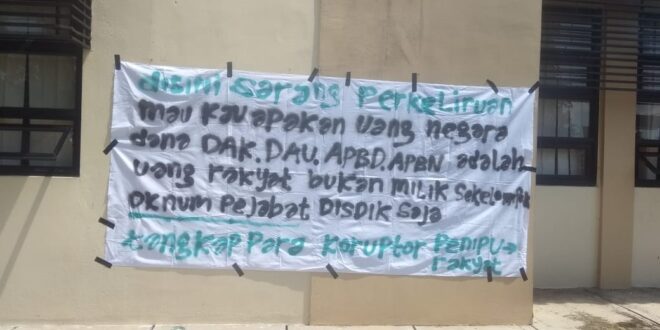 disini sarang perkeliruan
mau kau apakan uang negara
dana DAK. DAU. APBD. APBN adalah
uang rakyat bukan milik sekelompok
oknum pejabat DISDIK saja
tangkap para koruptor penipu
rakyat